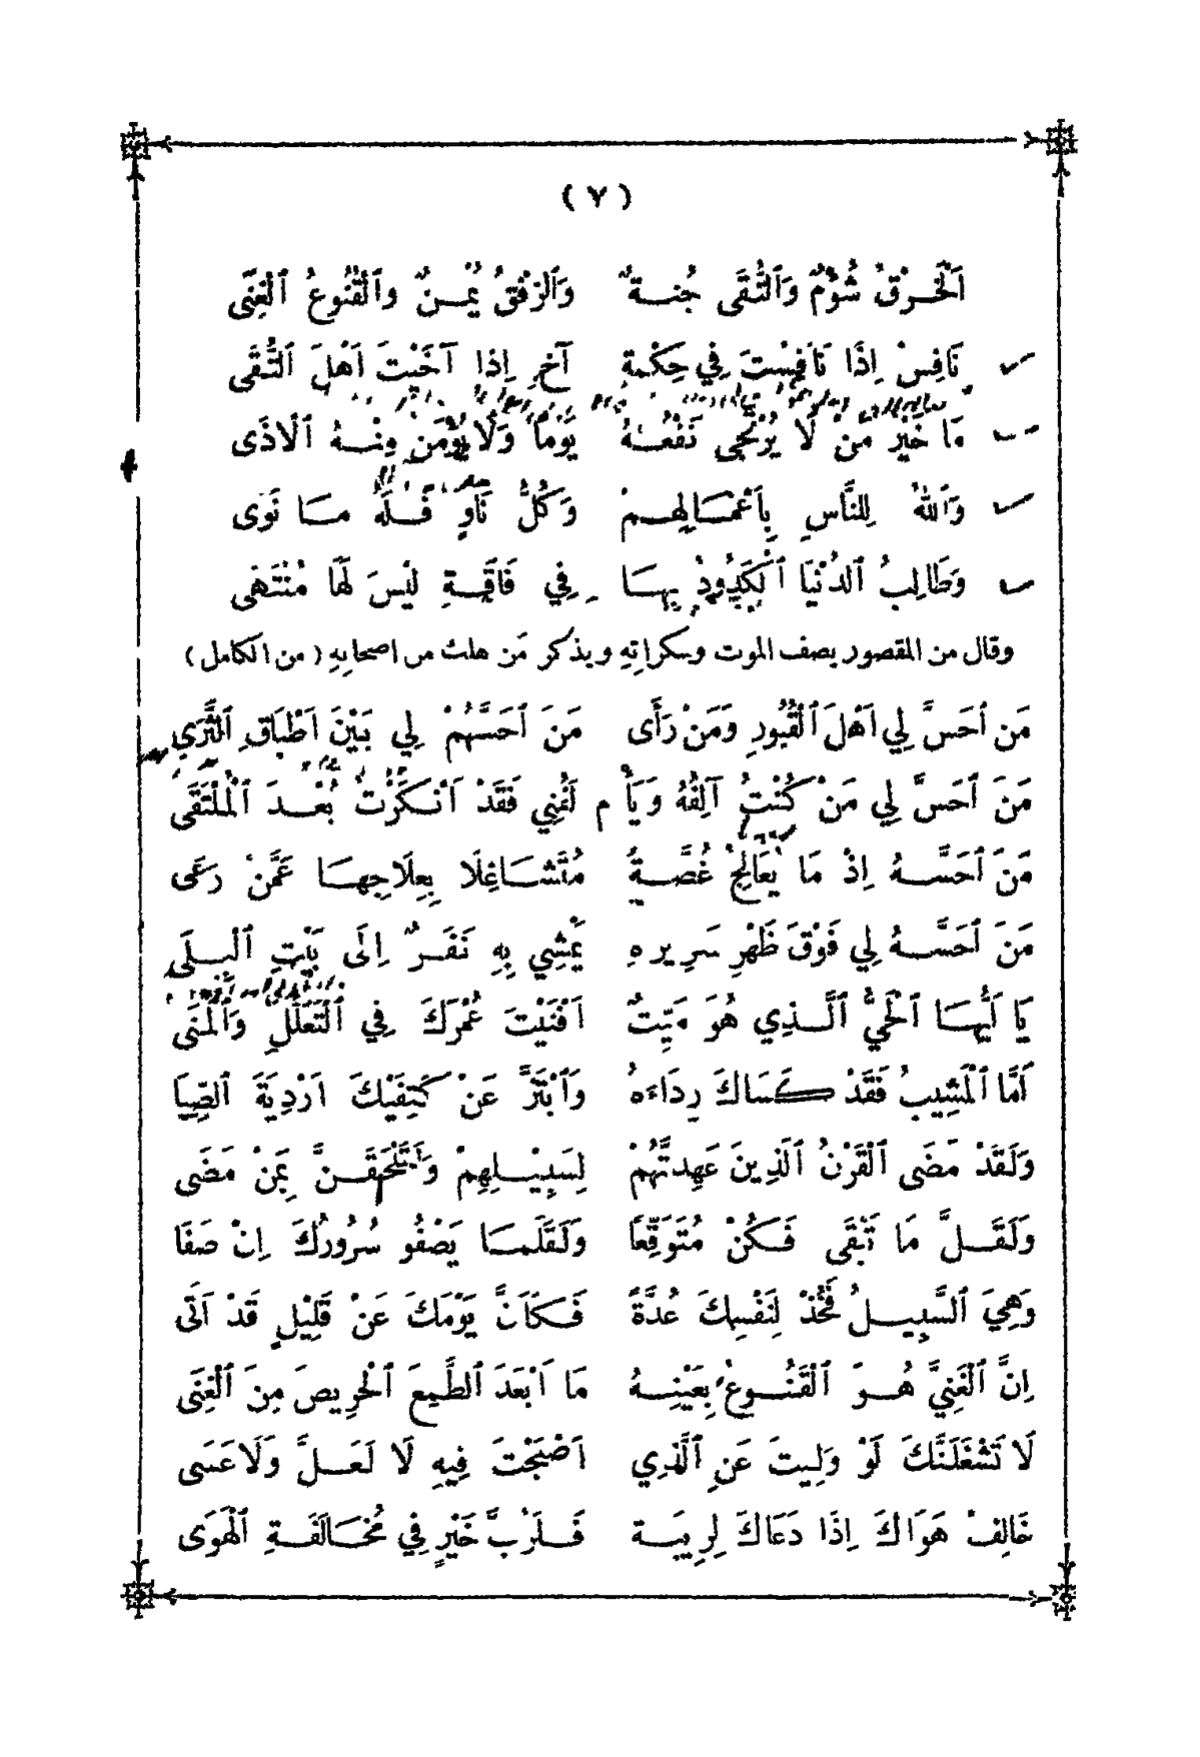 ( ٧ )
اَلْخَرْقُ شُؤْمٌ وَٱلتُّقَى جُنةٌ وَٱلرِّفْقُ يُمْنٌ وٱلْقُنُوعُ ٱلْغِنَى
نَافِسْ اِذَا نَافَسْتَ فِي حِكْمةٍ آخِ اِذَا آخَيْتَ اَهْلَ ٱلتُّقَى
مَا خَيْرُ مَنْ لَا يُرْتَجَى نَفْعُهُ يَوْماً وَلَا يُؤْمَنُ مِنْهُ ٱلْاذَى
وَٱللهُ لِلنَّاسِ بِاَعْمَالِهِمْ وَكُلُّ نَاوٍ فَلَهُ مَا نَوَى
وَطَالِبُ ٱلدُّنْيَا ٱلْكَدُودُ بِهَا فِي فَاقَةٍ لَيْسَ لَهَا مُنْتَهَى
وقال من المقصور يصف الموت وسكراتِهِ ويذكر مَن هلك من اصحابِهِ (من الكامل)
مَن اَحَسَّ لِي اَهْلَ ٱلْقُبُورِ وَمَنْ رَأَى مَنَ اَحَسَّهُمْ لِي بَيْنَ اَطْبَاقِ ٱلثَّرَى
مَنَ اَحَسَّ لِي مَنْ كُنْتُ آلَفُهُ وَيَأْ م لَفُنِي فَقَدْ اَنْكَرْتُ بُعْدَ ٱلْمُلْتَقَى
مَنَ اَحَسَّهُ اِذْ مَا يُعَالِجُ غُصَّةً مُتَشَاغِلًا بِعِلَاجِهَا عَمَّنْ رَعَى
مَنَ اَحَسَّهُ لِي فَوْقَ ظَهْرِ سَرِيرِهِ يَمْشِي بِهِ نَفَرٌ اِلَى بَيْتِ ٱلْبِلَى
يَا اَيُّهَا ٱلْحَيُّ ٱلَّذِي هُوَ مَيِّتٌ اَفْنَيْتَ عُمْرَكَ فِي ٱلتَّعَلُّلِ وَٱلْمُنَى
اَمَّا ٱلْمَشِيبُ فَقَدْ كَسَاكَ رِدَاءَهُ وَٱبْتَزَّ عَنْ كَتِفَيْكَ اَرْدِيَةَ ٱلصِّبَا
وَلَقَدْ مَضَى ٱلْقَرْنُ ٱلَّذِينَ عَهِدتَّهُمْ لِسَبِيْلِهِمْ وَلَتَلْحَقَنَّ بِمَنْ مَضَى
وَلَقَلَّ مَا تَبْقَى فَكُنْ مُتَوَقِّعًا وَلَقَلَّمَا يَصْفُو سُرُورُكَ اِنْ صَفَا
وَهِيَ ٱلسَّبِيلُ فَخُذْ لِنَفْسِكَ عُدَّةً فَكَاَنَّ يَوْمَكَ عَنْ قَلِيْلٍ قَدْ اَتَى
اِنَّ ٱلْغَنِيَّ هُوَ ٱلْقَنُوعُ بِعَيْنِهِ مَا اَبْعَدَ ٱلطَّمِعَ ٱلْحَرِيصَ مِنَ ٱلْغِنَى
لَا تَشْغَلَنَّكَ لَوْ وَلِيتَ عَنِ ٱلَّذِي اَصْبَحْتَ فِيهِ لَا لَعَلَّ وَلَاعَسَى
خَالِفْ هَوَاكَ اِذَا دَعَاكَ لِرِيبَةٍ فَلَرُبَّ خَيْرٍ فِي مُخَالَفَةِ ٱلْهَوَى